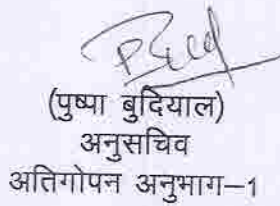 (पुष्पा बुदियाल)
अनुसचिव
अतिगोपन अनुभाग-1